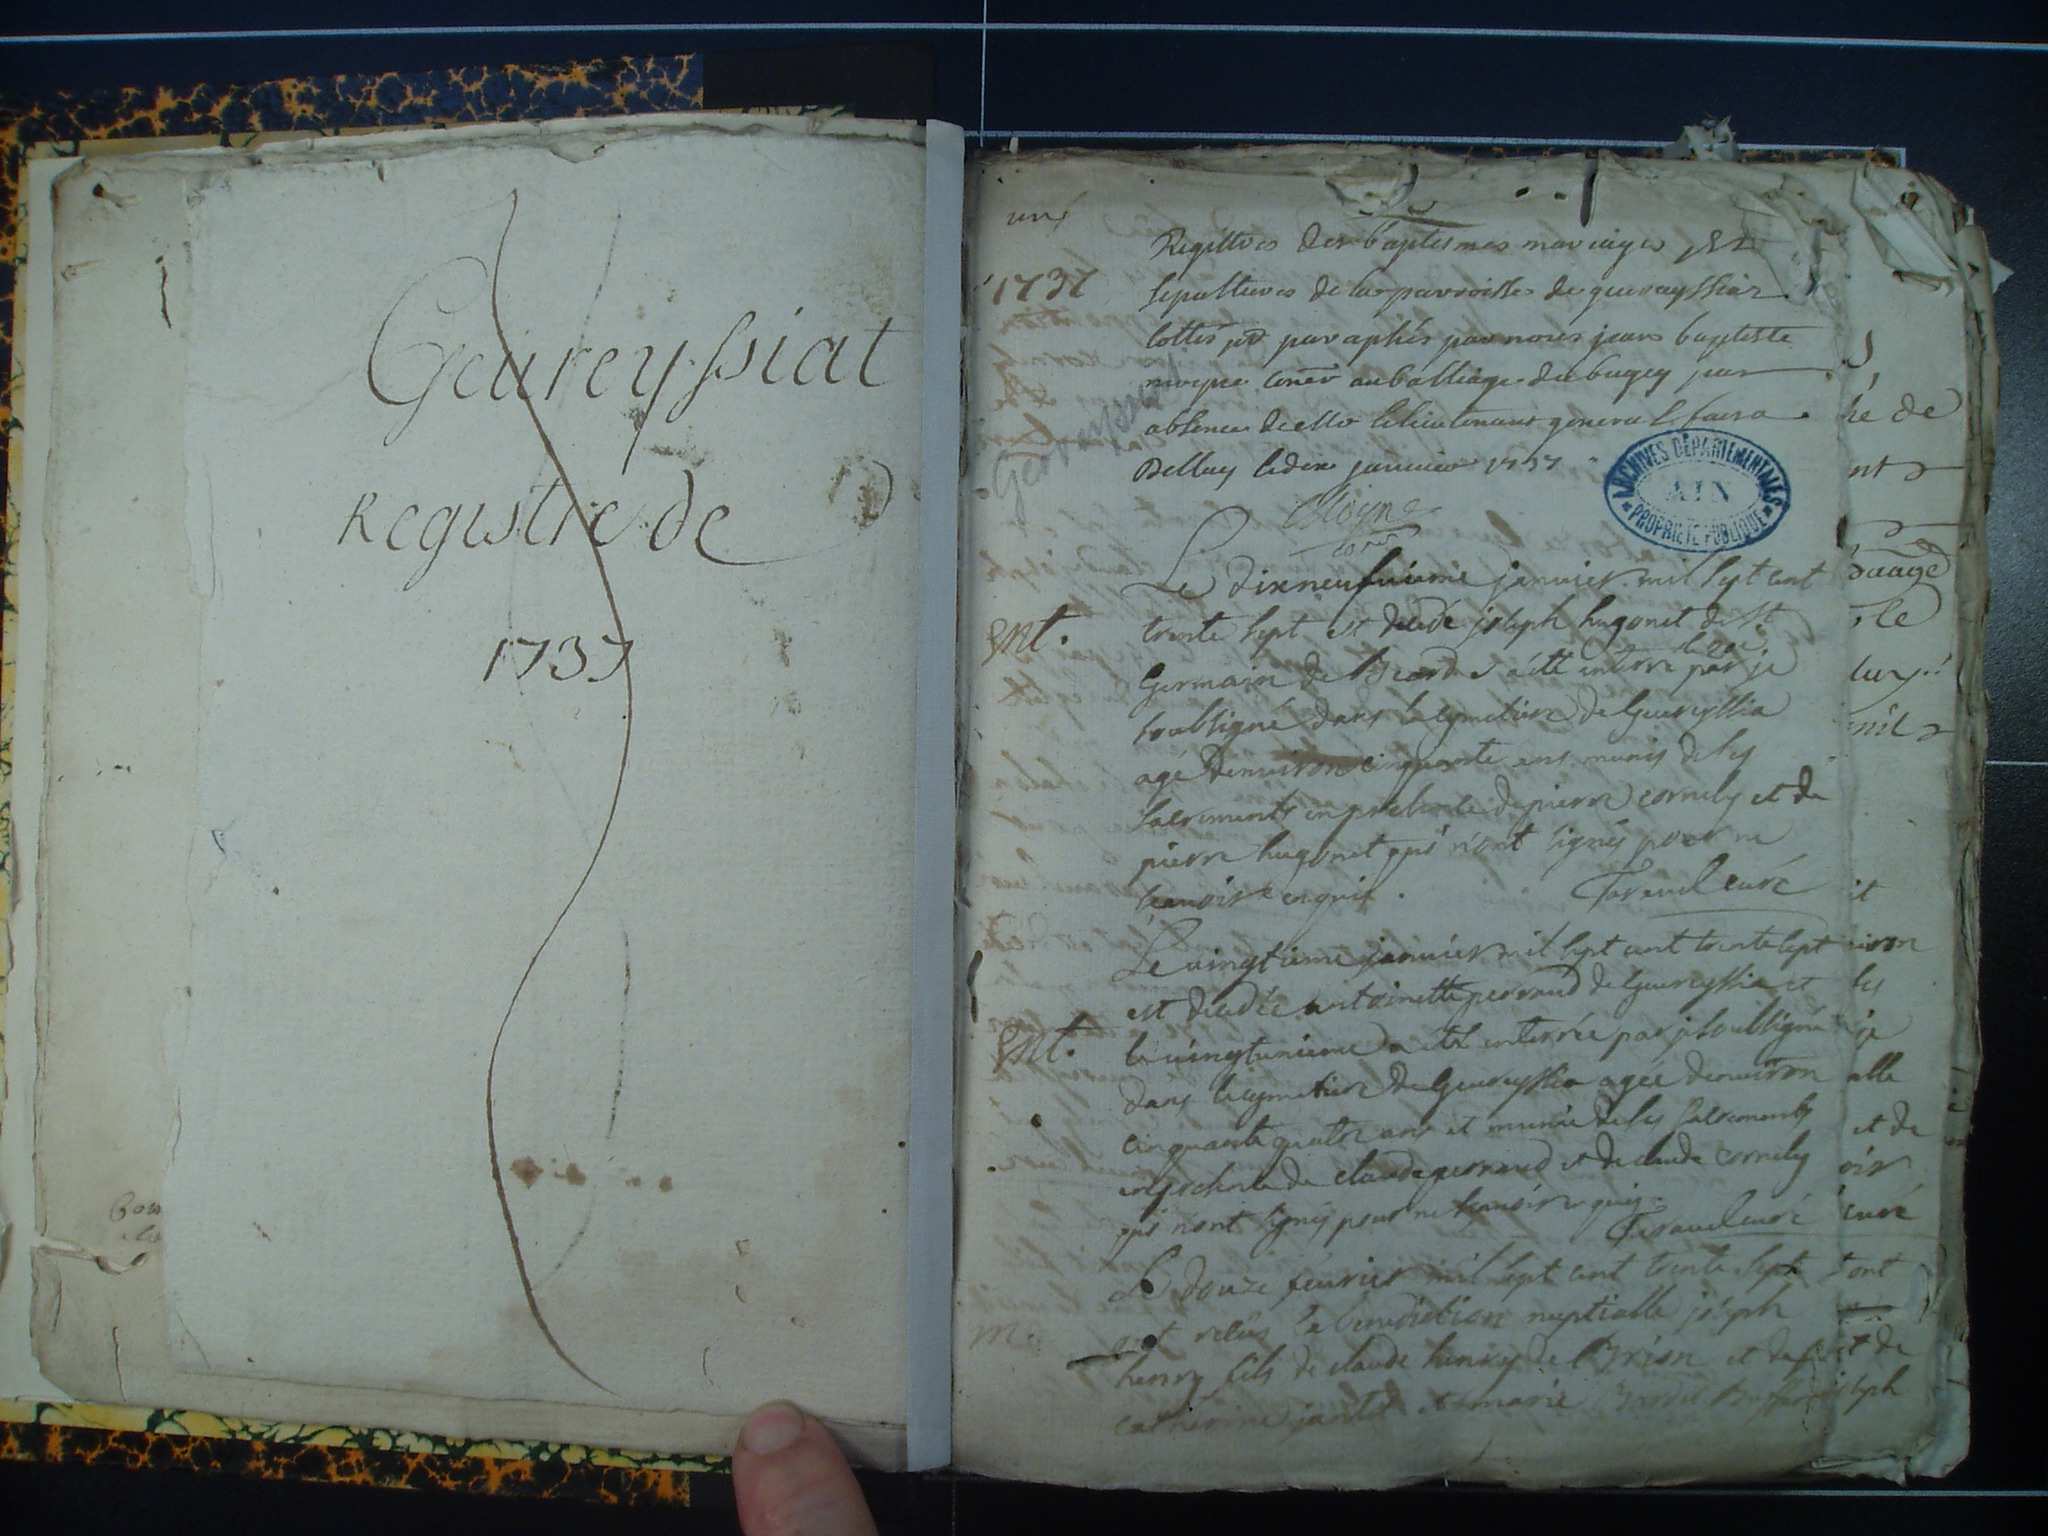 Geureyssiat
Registre de
1737
un
Registres des baptesmes mariages et
1737
sepultures de la parroisse de geureyssiaz
cottés et paraphés par nous jean baptiste
moyne au balliage du bugey par
absence de le lieutenant general
Belley le dix janvier 1737
Moyne
ARCHIVES DÉPARTEMENTALES
AIN
PROPRIÉTÉ PUBLIQUE
Le dixneufuieme januier mil sept cent
Ent.
trente sept est decedé joseph hugonet de St
le 20e
germain de Beard et a été enterré par je
soubsigné dans le cymetiere de Geureyssia
agé d'enuiron cinquante ans munis de ses
sacrements en presence de pierre cornely et de
pierre hugonet qui n'ont signés pour ne
scauoir enquis. curé
Le vingtieme januier mil sept cent trente sept
est decedée antoinette perraud de Geureyssia et
Ent.
le vingtunieme a été enterrée par je soubsigné
dans le cymetiere de Geureyssia agée denuiron
cinquante quatre ans et munie de ses sacrements
en presence de claude perraud et de claude cornely
qui n'ont signés pour ne scauoir enquis.
curé
Le douze feurier mil sept cent trente sept
m.
ont reçus la benediction nuptialle joseph
henry fils de claude henry de et de
catherine et marie